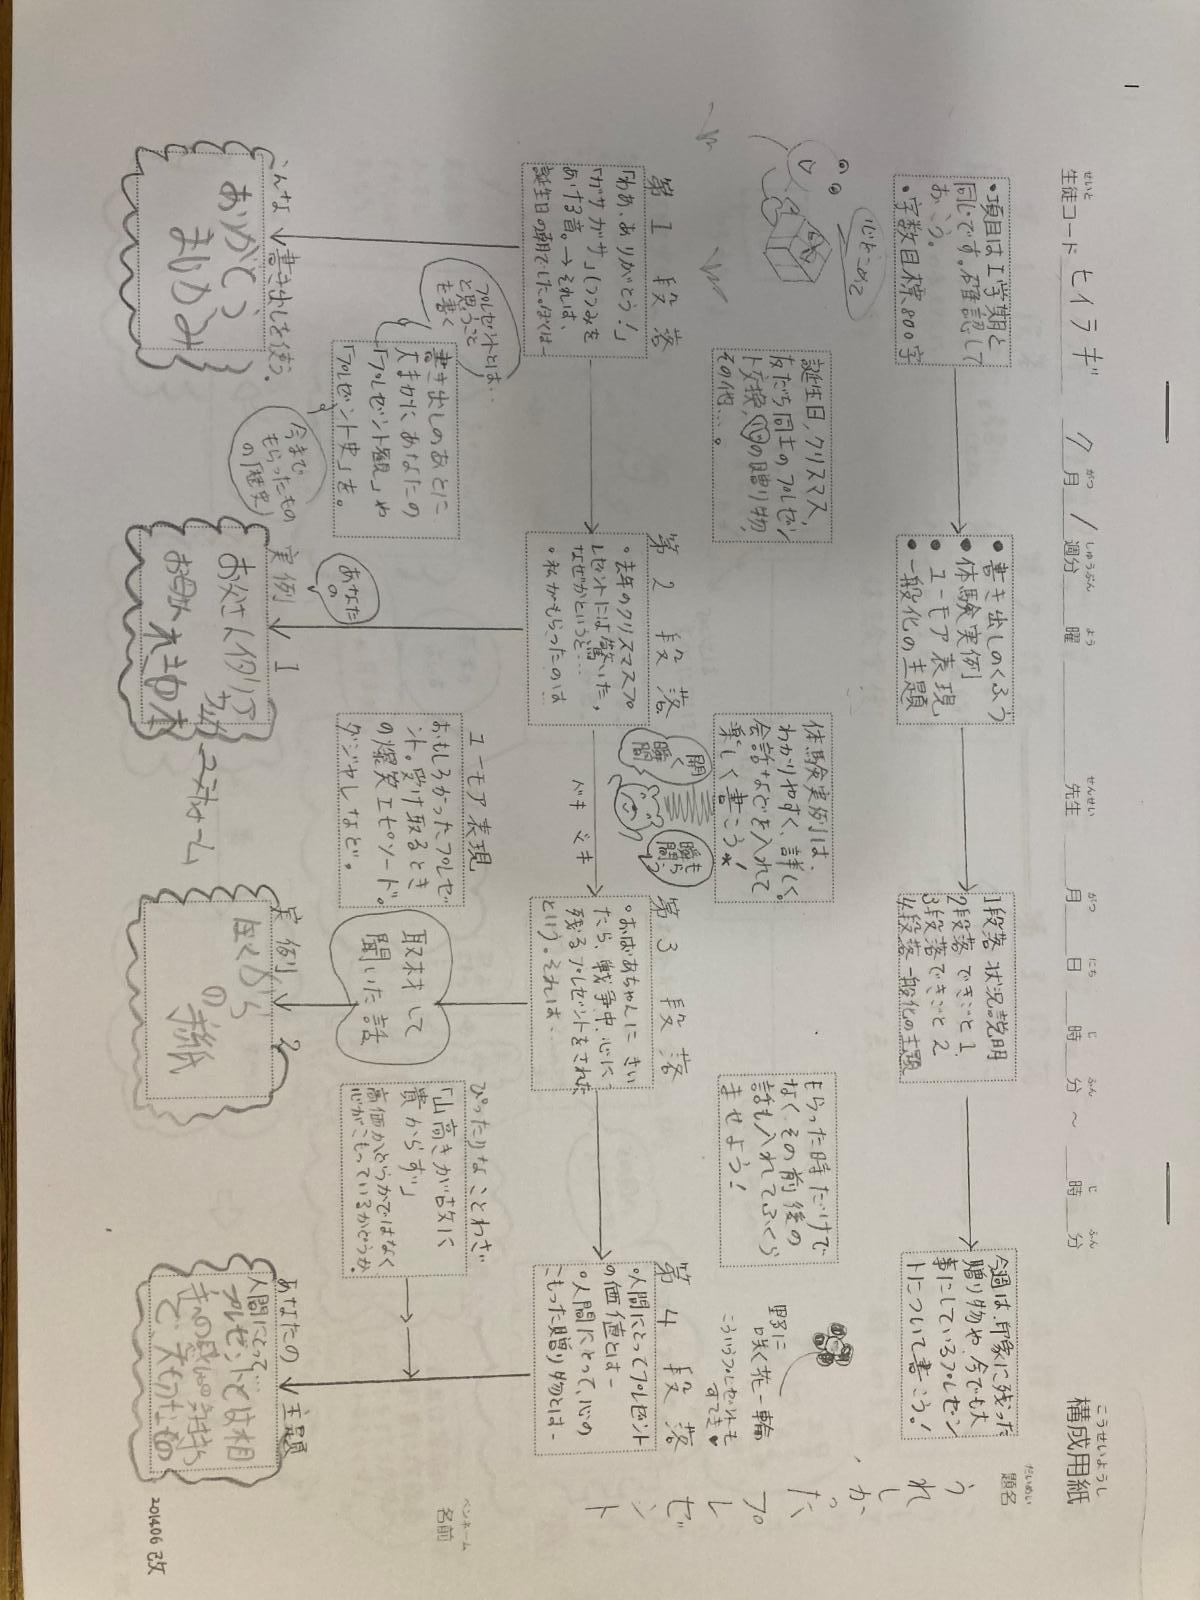 構成用紙
こうせいようし
題名
だいめい
うれしかったプレゼント
ペンネーム
名前
生徒コード ヒイラギ
せいと
9月1週分
がつ
しゅうぶん
曜
よう
先生
せんせい
月 日 時 分 ～ 時 分
がつ にち じ ふん じ ふん
今週は、印象に残った
贈り物や、今でも大
事にしているプレゼン
トについて書こう！
1段落 状況説明
2段落 できごと1
3段落 できごと2
4段落 一般化の主題
・書き出しのくふう
・体験実例
・ユーモア表現
・一般化の主題
・項目は1学期と
同じです。確認して
おこう。
・字数目標800字
野に
咲く花一輪
こういうプレゼントも
すてき♥
もらった時だけで
なく、その前後の
話も入れてふくら
ませよう！
体験実例は、
わかりやすく、詳しく。
会話などを入れて
楽しく書こう！
開く
瞬間
誕生日、クリスマス、
友だち同士のプレゼン
ト交換、心の贈り物、
その他…。
第1段落
「わあ、ありがとう！」
「ガサガサ」（つつみを
あける音。→それは、
誕生日の朝でした。ぼくは―
プレゼントとは…
と思うこと
を書く
書き出しのあとに、
大まかにあなたの
「プレゼント観」や
「プレゼント史」を。
今まで
もらったもの
の「歴史」
こんな書き出しを使う。
ありがとう
第2段落
・去年のクリスマスプ
レゼントには驚いた。
なぜかというと…
・私がもらったのは
バキ バキ
あなたの
実例1
お父さん
お母さん
ユーモア表現
おもしろかったプレゼ
ント。受け取るとき
の爆笑エピソード。
ダジャレなど。
第3段落
・おばあちゃんにきい
たら、戦争中、心に
残るプレゼントをされた
という。それは…
取材して
聞いた話
実例2
の手紙
ぴったりなことわざ
「山高きが故に
貴からず」
高価かどうかではなく
心がこもっているかどうか。
第4段落
・人間にとってプレゼント
の価値とは―
・人間にとって、心の
こもった贈り物とは―
あなたの主題
人間にとって…
プレゼントとは相
201406改